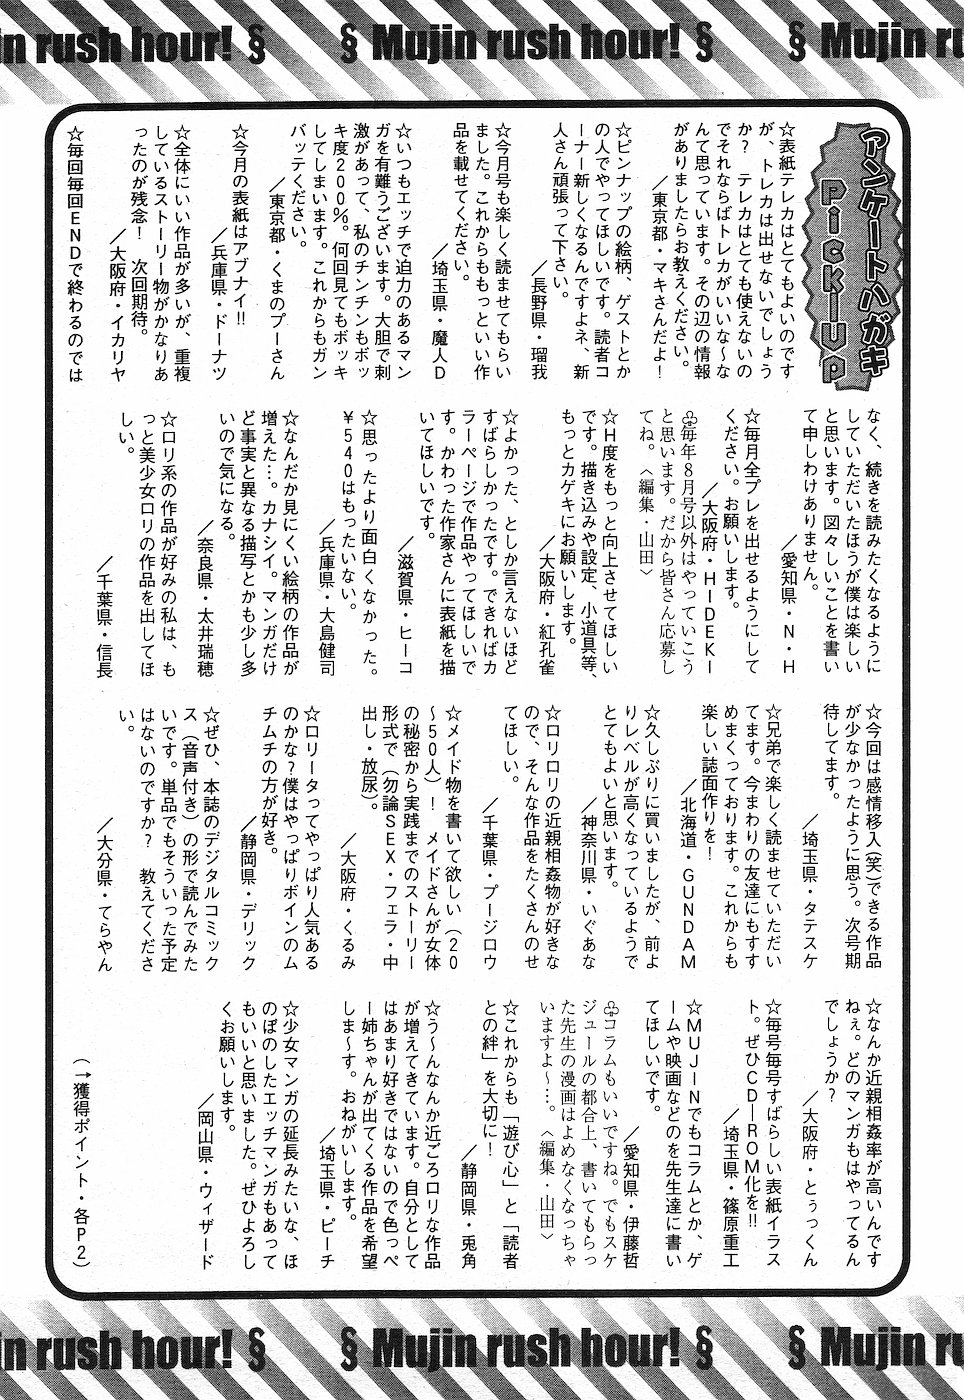 in rush hour! § § Mujin rush hour! § § Mujin ru
アンケートハガキ
Pick-UP
☆表紙テレカはとてもよいのです
が、トレカは出せないでしょう
か? テレカはとても使えないの
でそれならばトレカがいいな~な
んて思っています。その辺の情報
がありましたらお教えください。
／東京都・マキさんだよ!
☆ピンナップの絵柄、ゲストとか
の人でやってほしいです。読者コ
ーナー新しくなるんですよネ、新
人さん頑張って下さい。
／長野県・瑠我
☆今月号も楽しく読ませてもらい
ました。これからももっといい作
品を載せてください。
／埼玉県・魔人D
☆いつもエッチで迫力のあるマン
ガを有難うございます。大胆で刺
激があって、私のチンチンもボッ
キ度200%。何回見てもボッキ
してしまいます。これからもガン
バッテください。
／東京都・くまのプーさん
☆今月の表紙はアブナイ!!
／兵庫県・ドーナツ
☆全体にいい作品が多いが、重複
しているストーリー物がかなりあ
ったのが残念! 次回期待。
／大阪府・イカリヤ
☆毎回毎回ENDで終わるのでは
なく、続きを読みたくなるように
していただいたほうが僕は楽しい
と思います。図々しいことを書い
て申しわけありません。
／愛知県・N・H
☆毎月全プレを出せるようにして
ください。お願いします。
／大阪府・HIDEKI
♧毎年8月号以外はやっていこう
と思います。だから皆さん応募し
てね。〈編集・山田〉
☆H度をもっと向上させてほしい
です。描き込みや設定、小道具等、
もっとカゲキにお願いします。
／大阪府・紅孔雀
☆よかった、としか言えないほど
すばらしかったです。できればカ
ラーページで作品やってほしいで
す。かわった作家さんに表紙を描
いてほしいです。
／滋賀県・ヒーコ
☆思ったより面白くなかった。
¥540はもったいない。
／兵庫県・大島健司
☆なんだか見にくい絵柄の作品が
増えた…。カナシイ。マンガだけ
ど事実と異なる描写とかも少し多
いので気になる。
／奈良県・太井瑞穂
☆ロリ系の作品が好みの私は、も
っと美少女ロリの作品を出してほ
しい。
／千葉県・信長
☆今回は感情移入(笑)できる作品
が少なかったように思う。次号期
待してます。
／埼玉県・タテスケ
☆兄弟で楽しく読ませていただい
てます。今まわりの友達にもすす
めまくっております。これからも
楽しい誌面作りを!
／北海道・GUNDAM
☆久しぶりに買いましたが、前よ
りレベルが高くなっているようで
とてもよいと思います。
／神奈川県・いぐあな
☆ロリロリの近親相姦物が好きな
ので、そんな作品をたくさんのせ
てほしい。
／千葉県・プージロウ
☆メイド物を書いて欲しい(20
~50人)! メイドさんが女体
の秘密から実践までのストーリー
形式で(勿論SEX・フェラ・中
出し・放尿)。
／大阪府・くるみ
☆ロリータってやっぱり人気ある
のかな?僕はやっぱりボインのム
チムチの方が好き。
／静岡県・デリック
☆ぜひ、本誌のデジタルコミック
ス(音声付き)の形で読んでみた
いです。単品でもそういった予定
はないのですか? 教えてくださ
い。
／大分県・てらやん
☆なんか近親相姦率が高いんです
ねぇ。どのマンガもはやってるん
でしょうか?
／大阪府・とぅっくん
☆毎号毎号すばらしい表紙イラス
ト。ぜひCD―ROM化を!!
／埼玉県・篠原重工
☆MUJINでもコラムとか、ゲ
ームや映画などのを先生達に書い
てほしいです。
／愛知県・伊藤哲
♧コラムもいいですね。でもスケ
ジュールの都合上、書いてもらっ
た先生の漫画はよめなくなっちゃ
いますよ~…。〈編集・山田〉
☆これからも「遊び心」と「読者
との絆」を大切に!
／静岡県・兎角
☆う~んなんか近ごろロリな作品
が増えてきています。自分として
はあまり好きではないので色っぺ
ー姉ちゃんが出てくる作品を希望
しま~す。おねがいします。
／埼玉県・ピーチ
☆少女マンガの延長みたいな、ほ
のぼのしたエッチマンガもあって
もいいと思いました。ぜひよろし
くお願いします。
／岡山県・ウィザード
(→獲得ポイント・各P2)
in rush hour! § § Mujin rush hour! § § Mujin ru